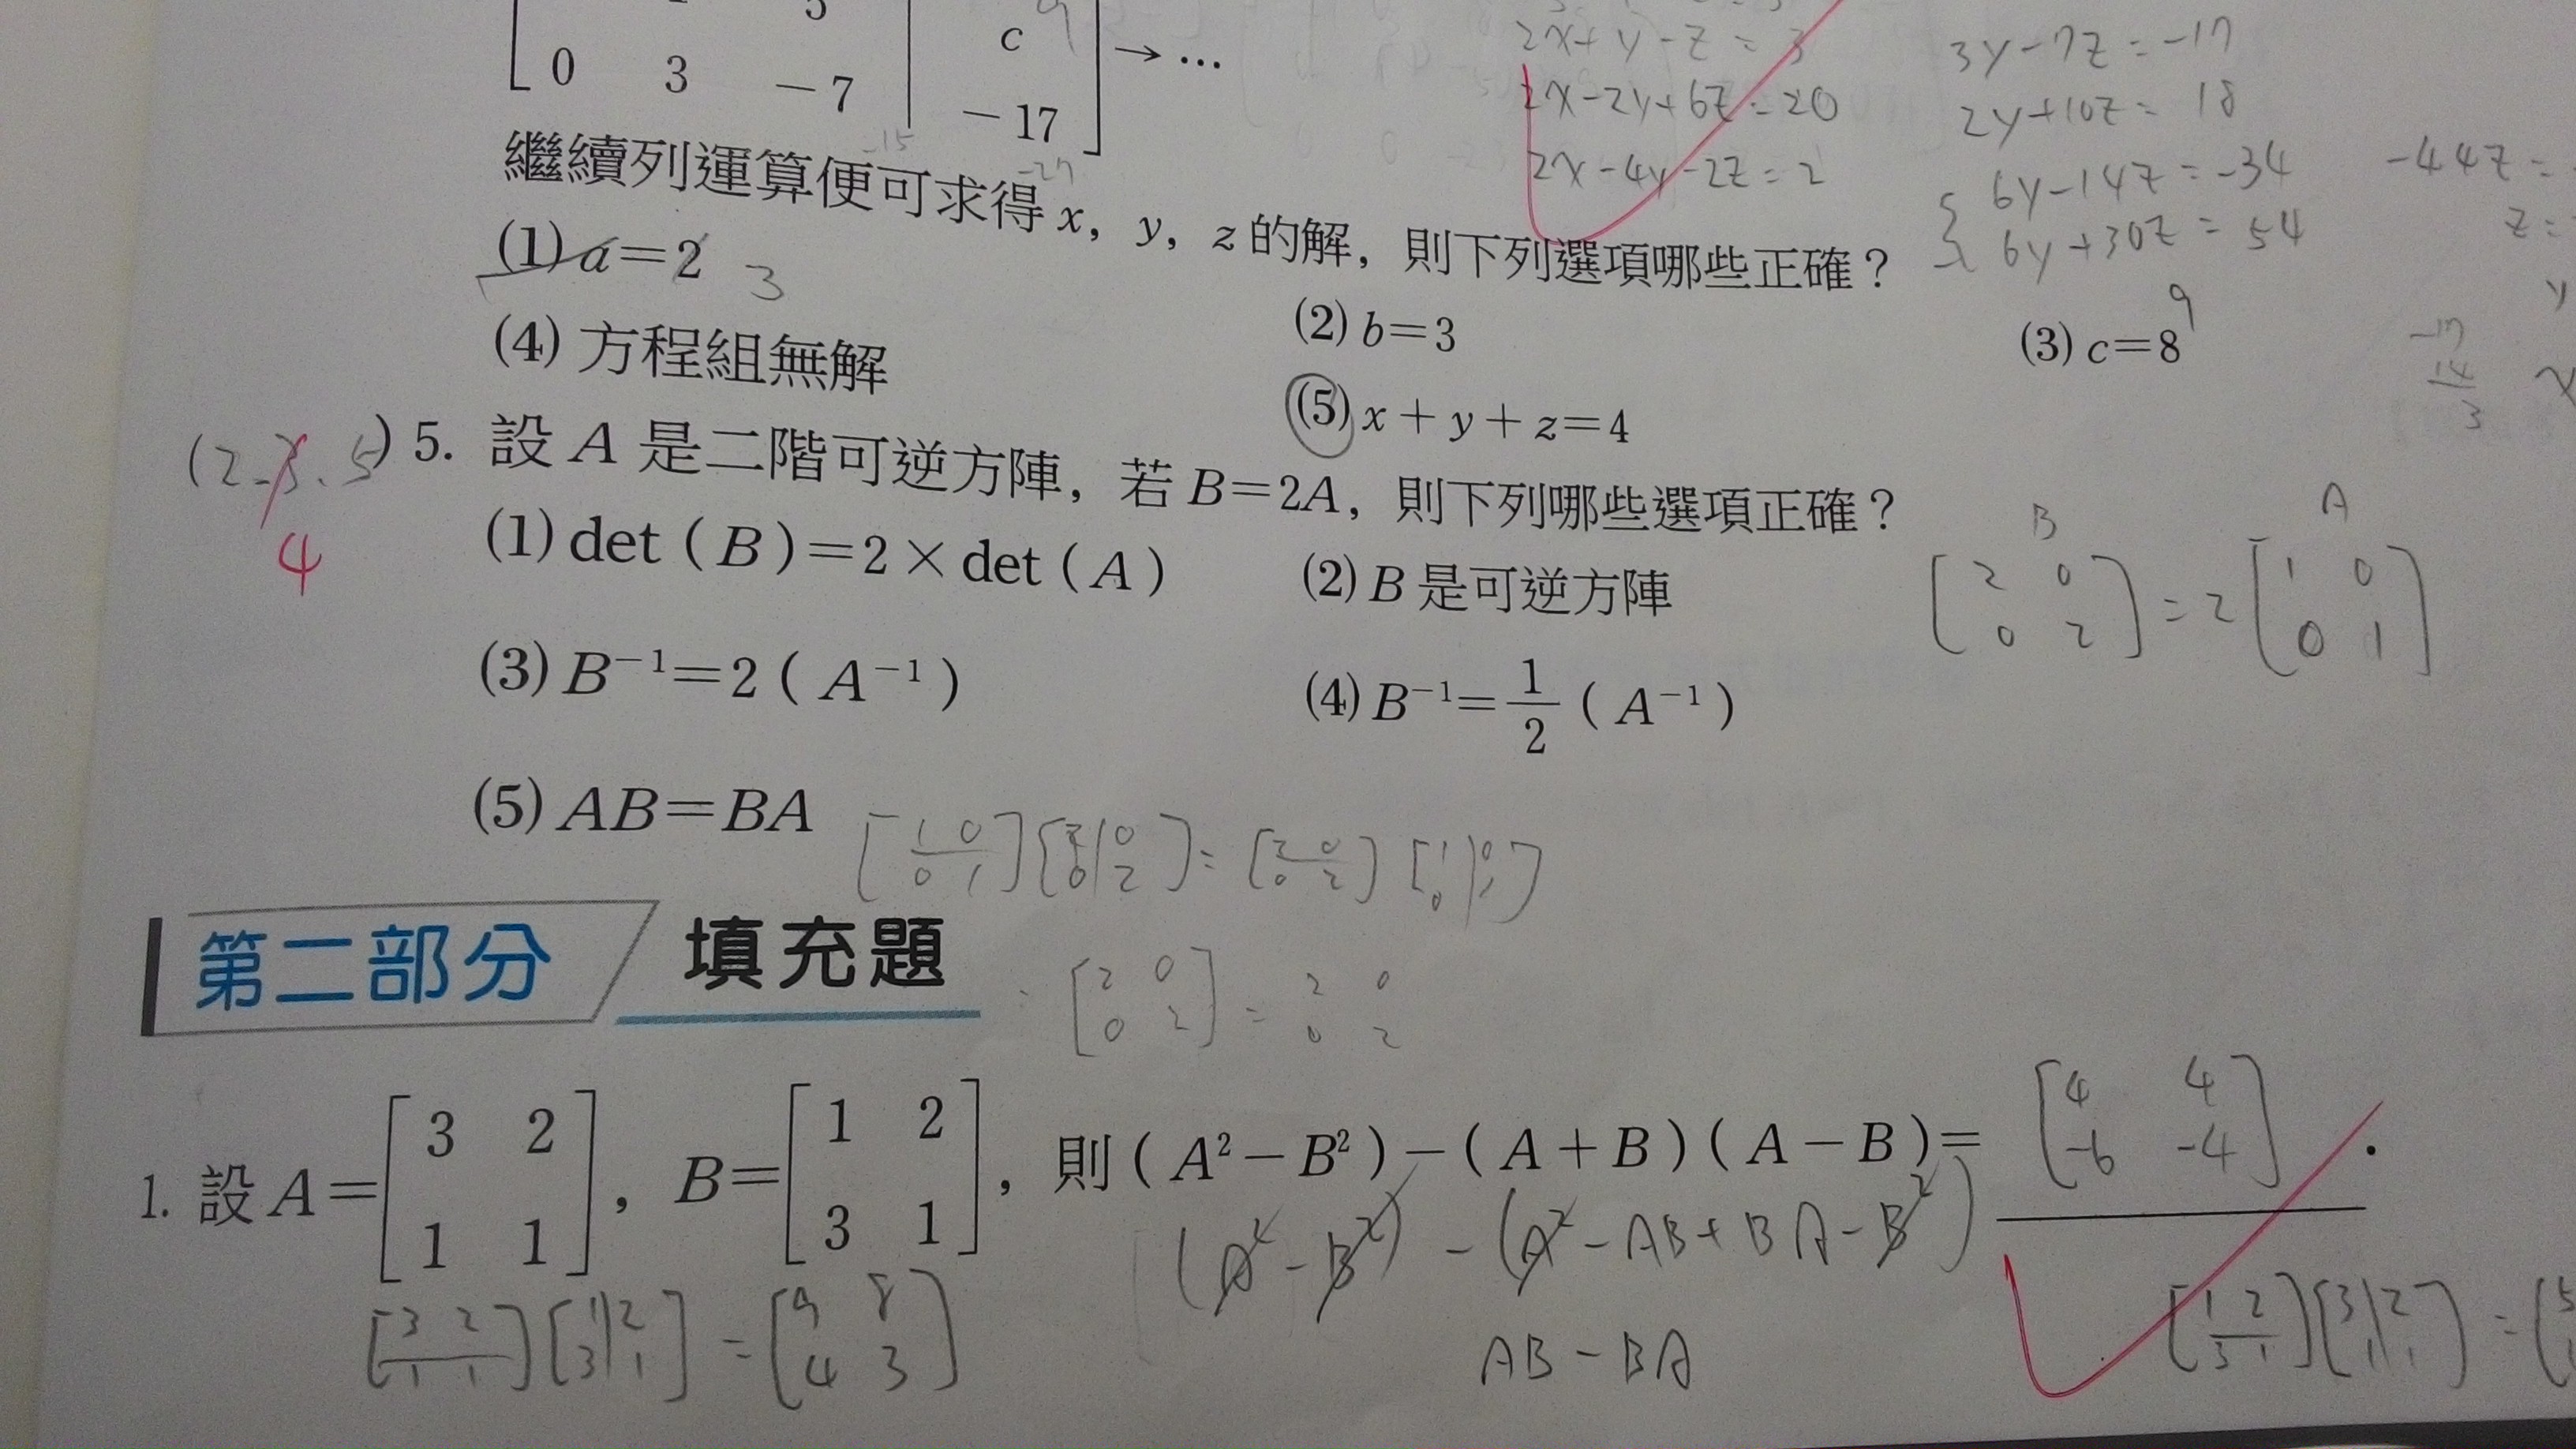 5
c 9
0 3 -7 -17 → …
2x+y-z=3
2x-2y+6z=20
2x-4y-2z=2
3y-7z=-17
2y+10z=18
6y-14z=-34
6y+30z=54
-44z=
z=
繼續列運算便可求得 x, y, z 的解, 則下列選項哪些正確?
-15
-27
(1) a=2 3
(2) b=3
(3) c=8 9
(4) 方程組無解
(5) x+y+z=4
y
-17
14
3
x
( 2. 5 ) 5. 設 A 是二階可逆方陣, 若 B=2A, 則下列哪些選項正確?
4
(1) det ( B )=2×det ( A )
(2) B 是可逆方陣
(3) B⁻¹=2 ( A⁻¹ )
(4) B⁻¹=1/2 ( A⁻¹ )
(5) AB=BA
B A
[2 0 = 2 [1 0
0 2] 0 1]
[1 0 [2 0 = [2 0 [1 0
0 1] 0 2] 0 2] 0 1]
[2 0 = 2 0
0 2] 0 2
第二部分 填充題
1. 設 A=[3 2 1 1], B=[1 2 3 1], 則 ( A²-B² )-( A+B ) ( A-B )= [4 4 -6 -4] .
(A²-B²) - (A²-AB+BA-B²)
AB-BA
[3 2 [1 2 = [9 8
1 1] 3 1] 4 3]
[1 2 [3 2 = [5
3 1] 1 1]